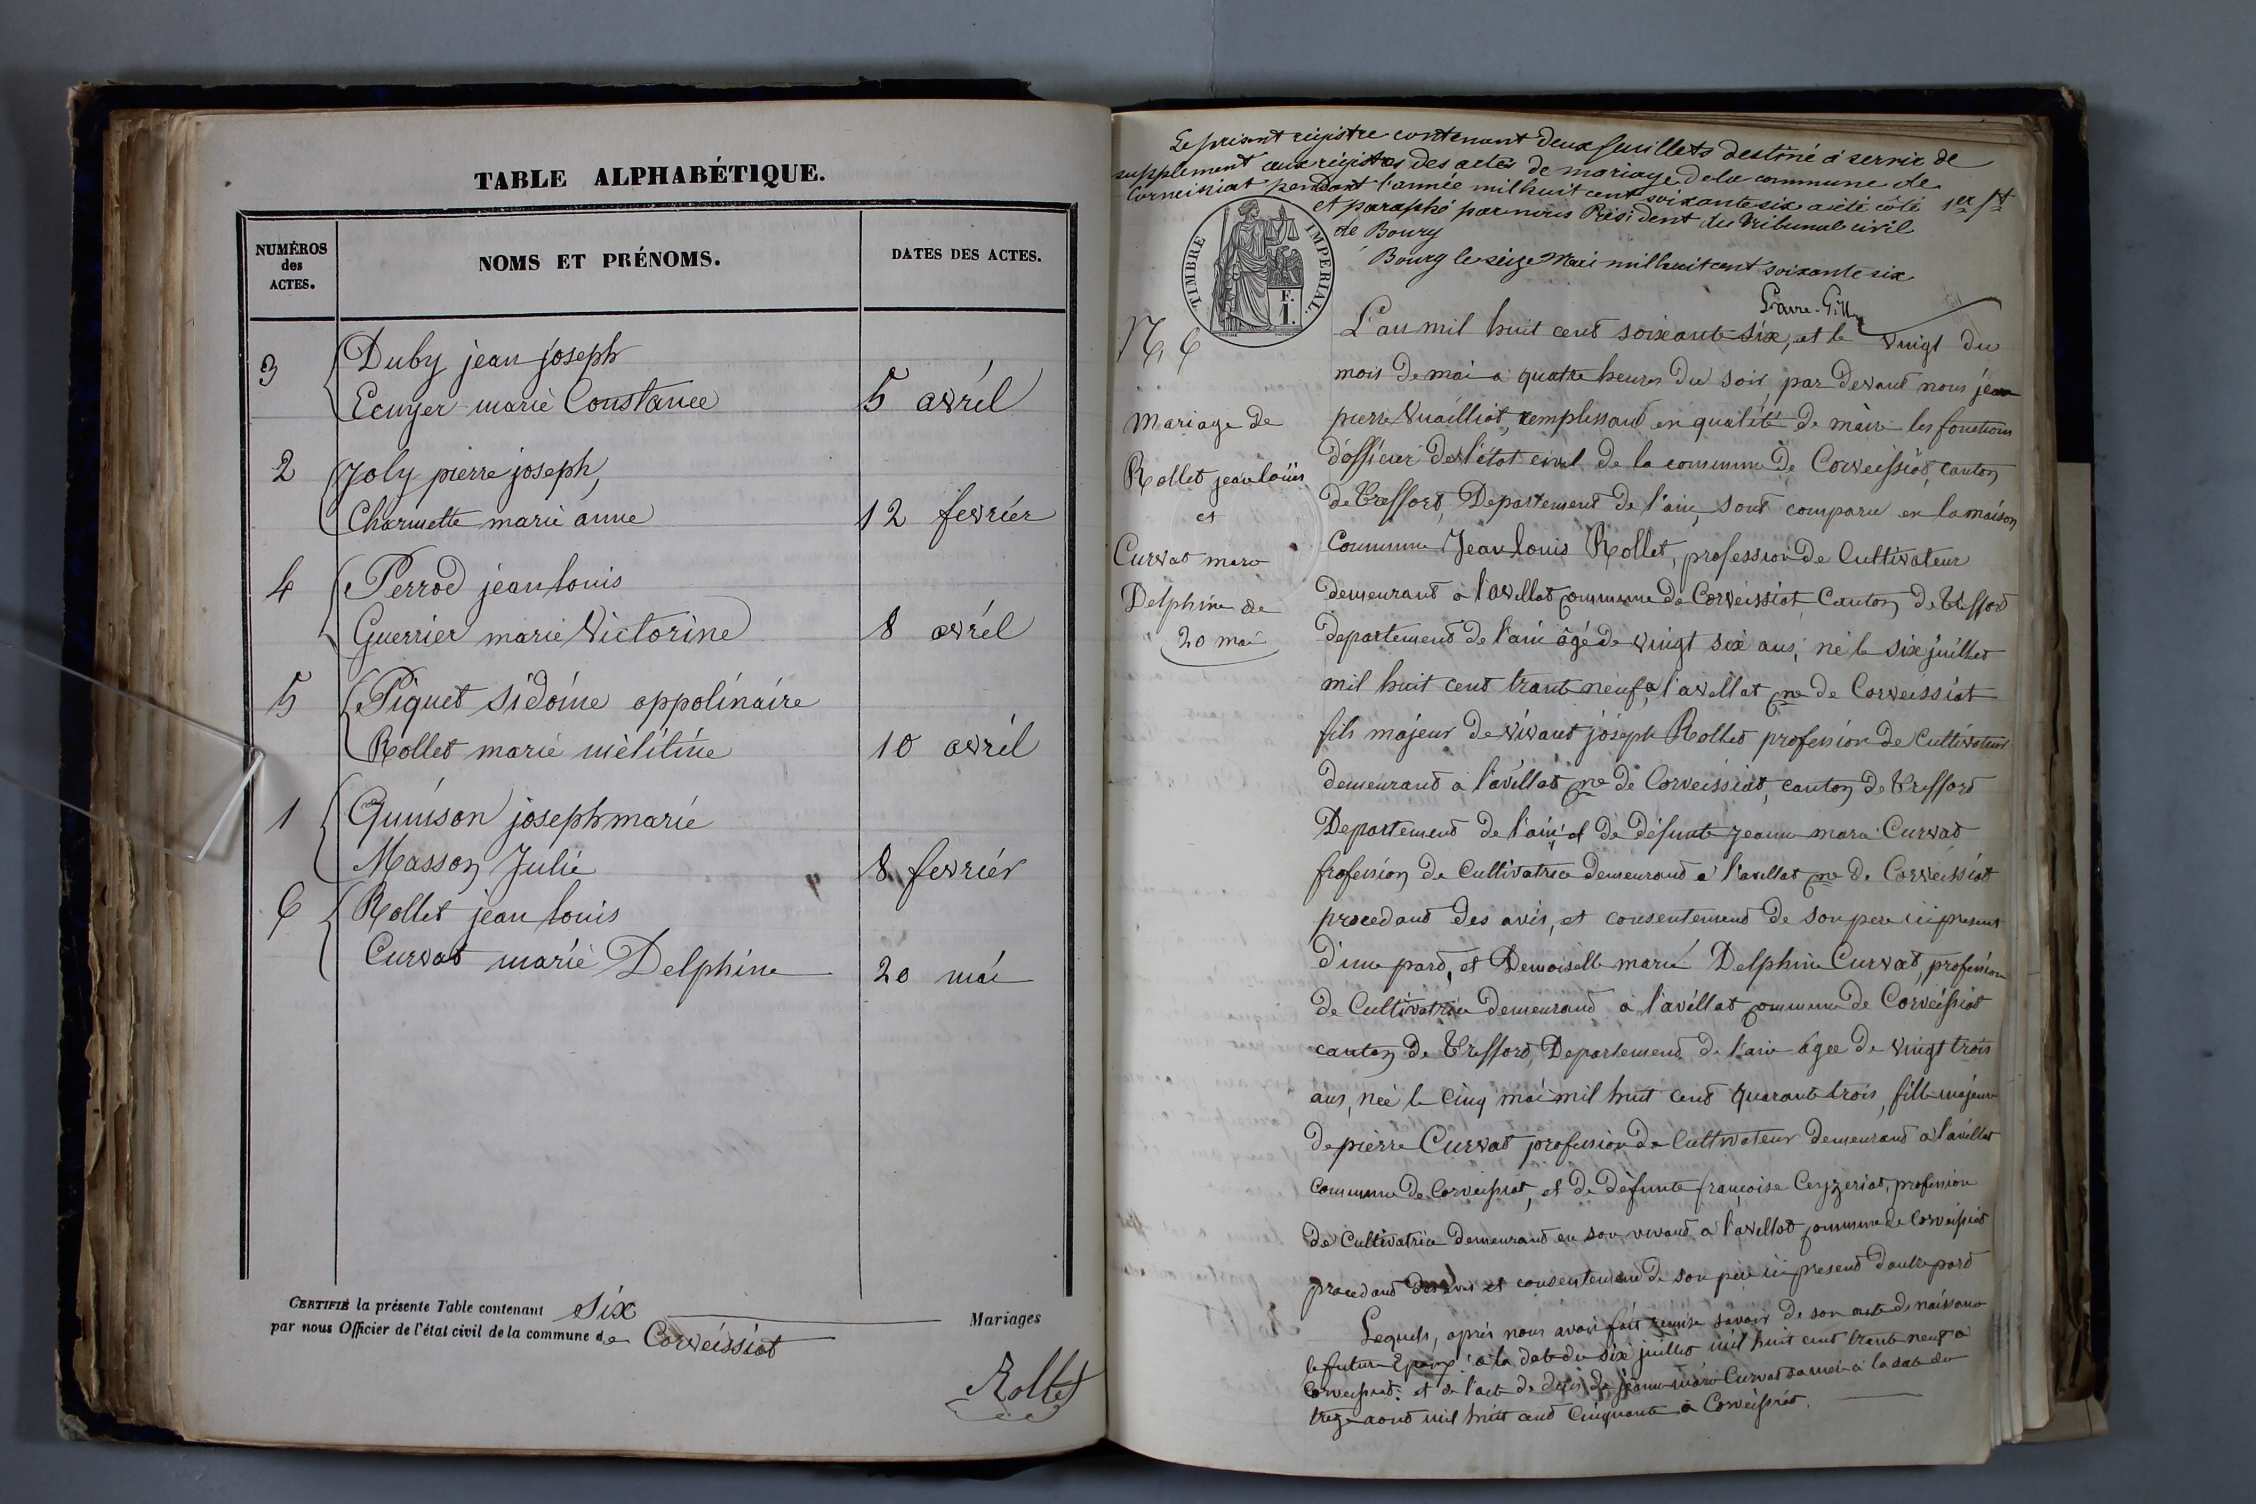 TABLE ALPHABÉTIQUE.
NUMÉROS
des
ACTES.
NOMS ET PRÉNOMS.
DATES DES ACTES.
3 Duby jean joseph
Ecuyer marie Constance 5 avril
2 Joly pierre joseph,
Charmette marie anne 12 fevrier
4 Perrod jean louis
Guerrier marie Victorine 8 avril
5 Piquet sidoine appolinaire
Rollet marie mélitine 10 avril
1 joseph marie
Masson Julie " 8 fevrier
6 Rollet jean louis
Curvat marie Delphine 20 mai
CERTIFIÉ la présente Table contenant six Mariages
par nous Officier de l'état civil de la commune de Corveissiat
Rollet
Le présent registre contenant deux feuillets destiné à servir de
supplement aux régistres des actes de mariage de la commune de
Corveissiat pendant l'année mil huit cent soixante six a été côté 1er
et paraphé par nous Président du Tribunal civil
de Bourg
Bourg le seize Mai mil huit cent soixante six
TIMBRE IMPERIAL.
F.
1.
N. 6
Mariage de
Rollet jean louis
et
Curvat marie
Delphine de
20 mai
L'an mil huit cent soixante six, et le vingt du
mois de mai à quatre heures du soir, par devant nous jean
pierre Vuailliat, remplissant en qualité de maire les fonctions
d'officier de l'état civil de la commune de Corveissiat, canton
de Treffort, Departement de l'ain, sont comparu en la maison
commune Jean louis Rollet, profession de Cultivateur
demeurant à l'avillat commune de Corveissiat Canton de Treffort
departement de l'ain âgé de vingt six ans, né le six juillet
mil huit cent trante neuf à l'avellat cne de Corveissiat
fils majeur de vivant joseph Rollet profession de Cultivateur
demeurant a l'avillat cne de Corveissiat, canton de Treffort
Departement de l'ain, et de défunte jeanne marie Curvat
profession de Cultivatrice demeurant a l'avillat cne de Corveissiat
procedant des avis, et consentement de son pere ici present
d'une part, et Demoiselle marie Delphine Curvat, profession
de Cultivatrice demeurant à l'avillat commune de Corveissiat
canton de Treffort, Departement de l'ain agee de vingt trois
ans, née le cinq mai mil huit cent quarante trois, fille majeure
de pierre Curvat profession de Cultivateur demeurant a l'avillat
commune de Corveissiat, et de défunte françoise Ceyzeriat, profession
de Cultivatrice demeurant en son vivant a l'avillat commune de Corveissiat
procedant des avis et consentement de son père ici present d'autre part
Lequels, après nous avoir fait remise savoir de son acte de naissance
le futur Epoux à la date du six juillet mil huit cent trante neuf a
Corveissiat. et de l'acte de décès de jeanne marie Curvat sa mere à la date du
treize aout mil huit cent cinquante à Corveissiat.